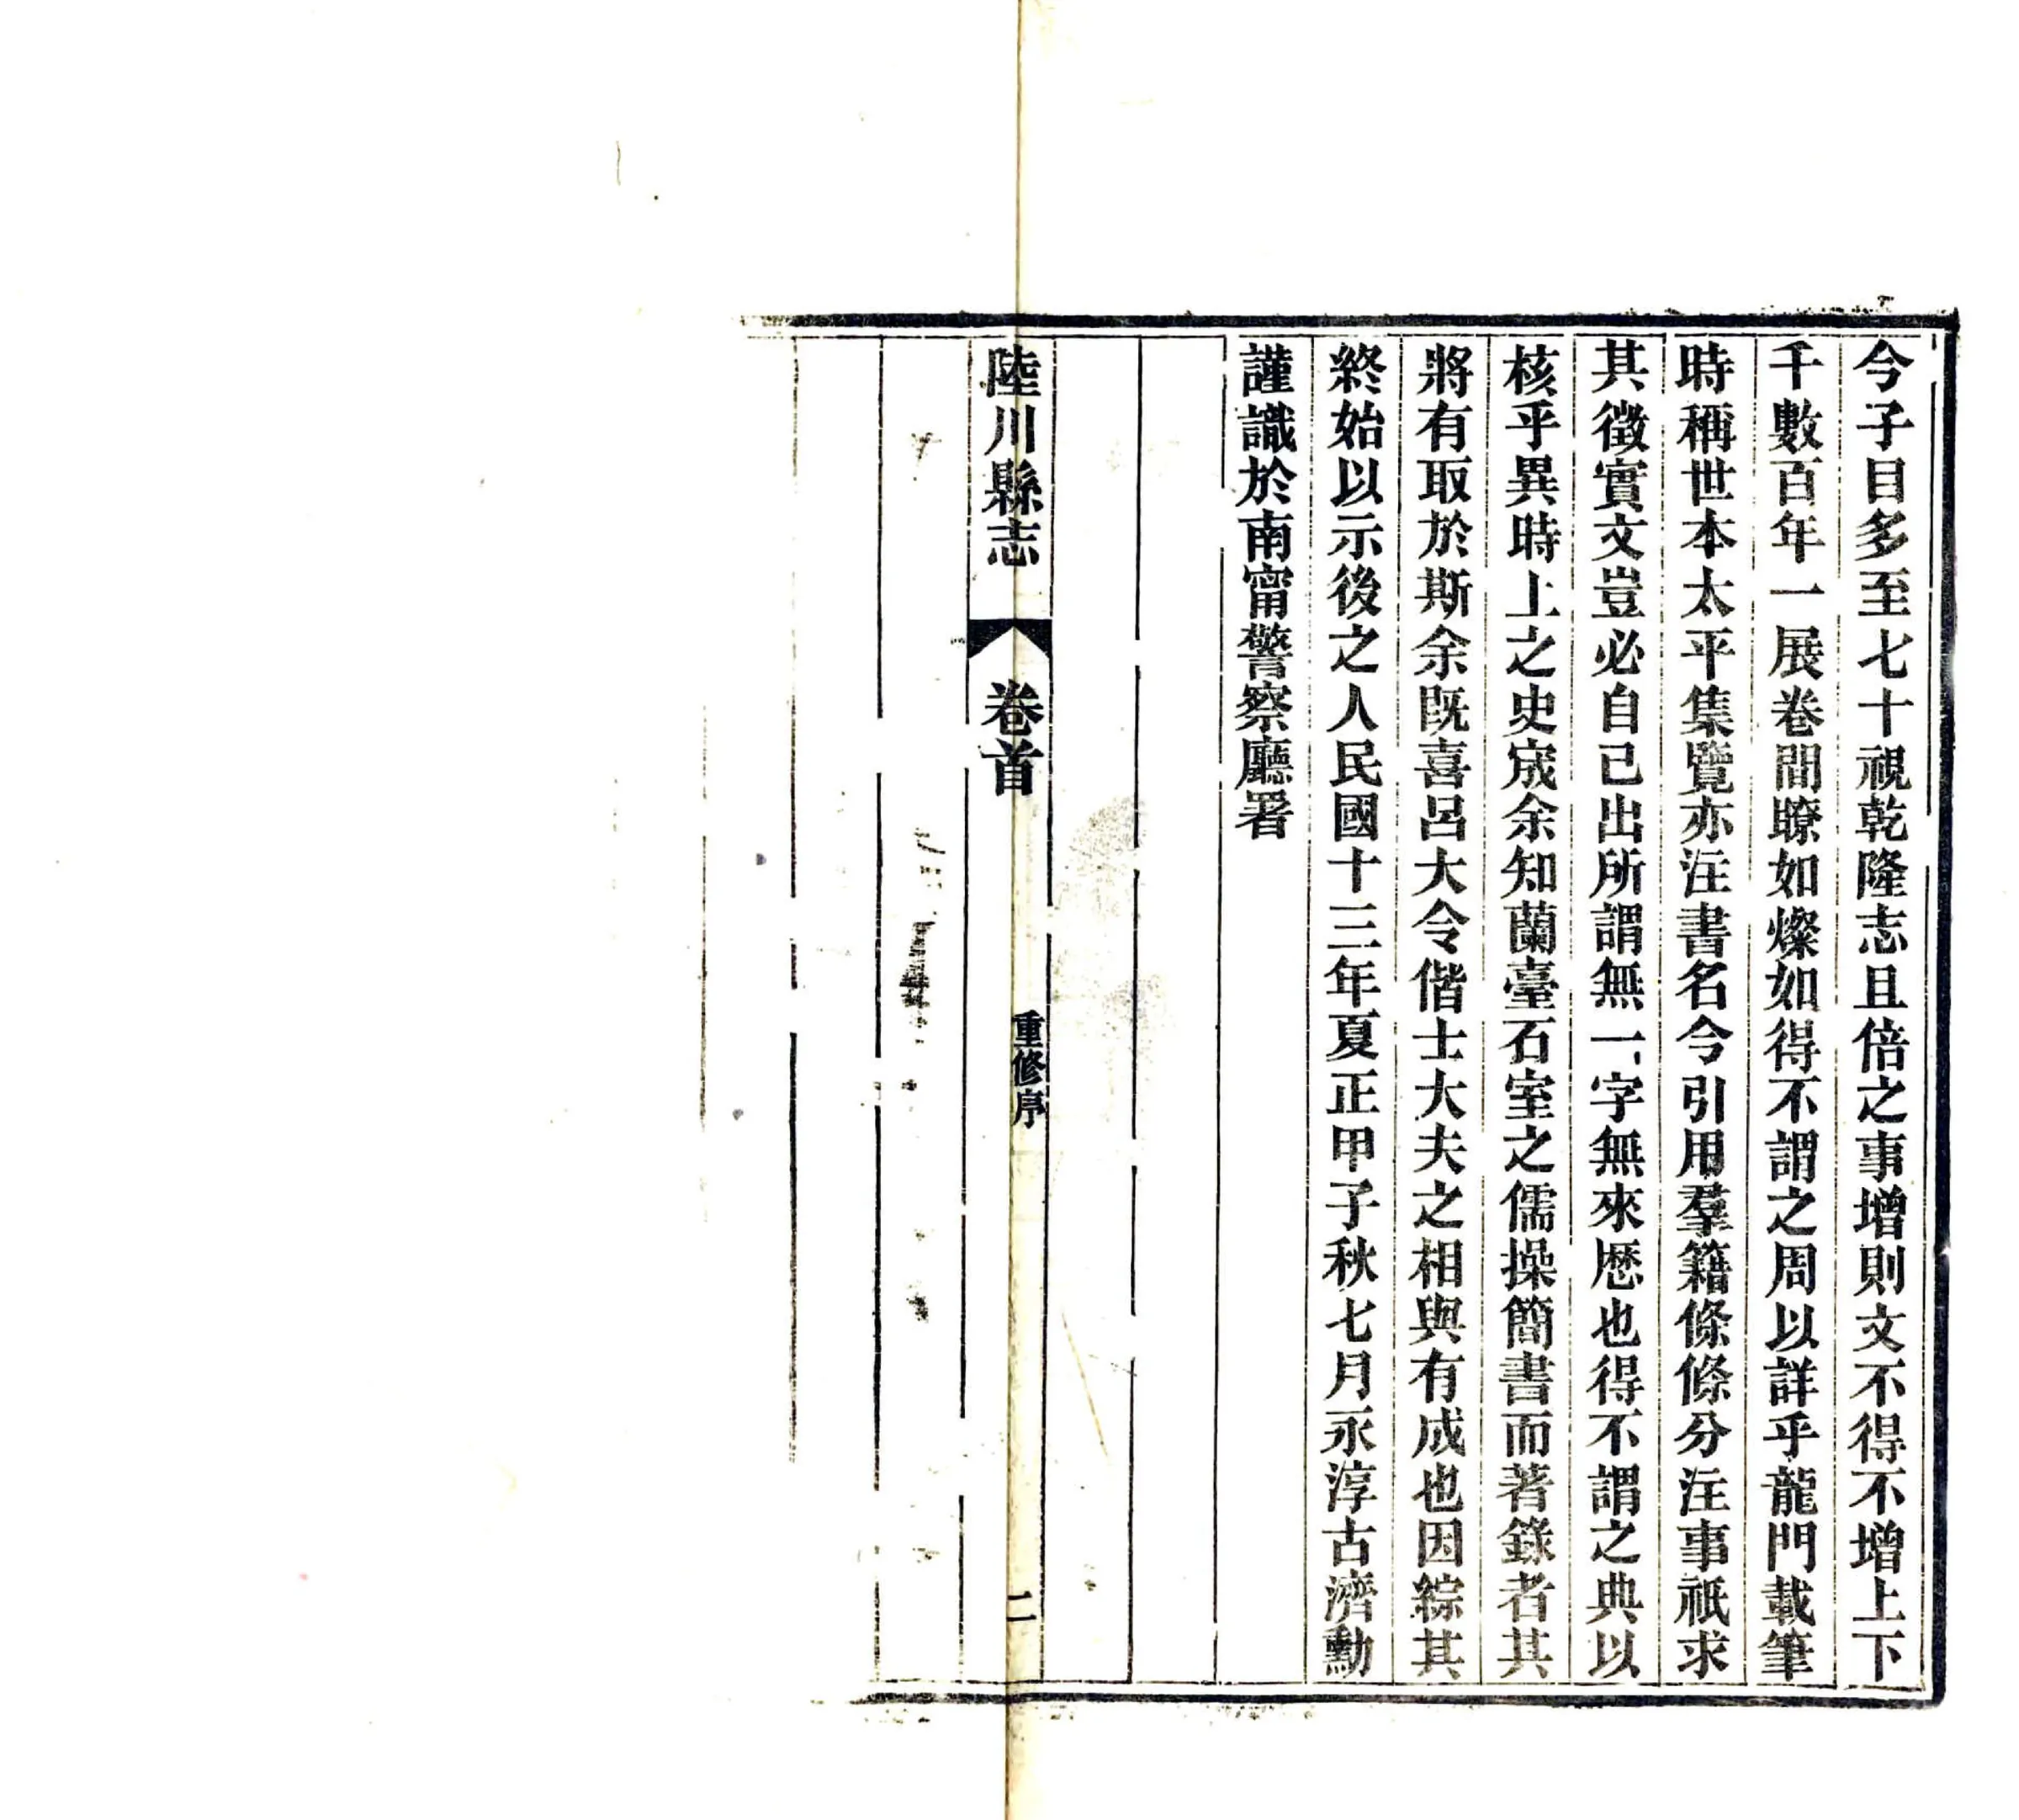 今子目多至七十視乾隆志且倍之事增則文不得不增上下
千數百年一展卷間瞭如燦如得不謂之周以詳乎龍門載筆
時稱世本太平集覽亦注書名今引用羣籍條條分注事祇求
其徵實文豈必自己出所謂無一字無來歷也得不謂之典以
核乎異時上之史宬余知蘭臺石室之儒操簡書而著錄者其
將有取於斯余既喜呂大令偕士大夫之相與有成也因綜其
終始以示後之人民國十三年夏正甲子秋七月永淳古濟勳
謹識於南甯警察廳署
陸川縣志 卷首 重修序 二